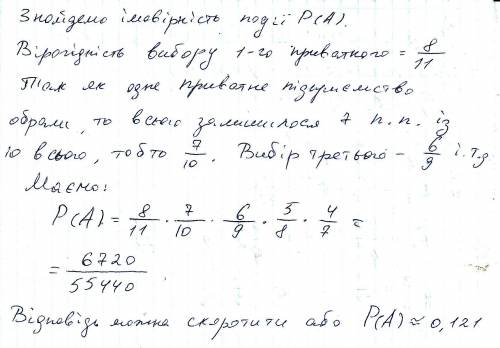 Знайдемо імовірність події P(A).
Вірогідність вибору 1-го приватного = 8/11
Так як одне приватне підприємство
обрали, то всього залишилося 7 п.п. із
10 всього, тобто 7/10. Вибір третього - 6/9 і.т.д
Маємо:
P(A) = 8/11 · 7/10 · 6/9 · 5/8 · 4/7 =
= 6720/55440
Відповідь можна скоротити або P(A) ≈ 0,121